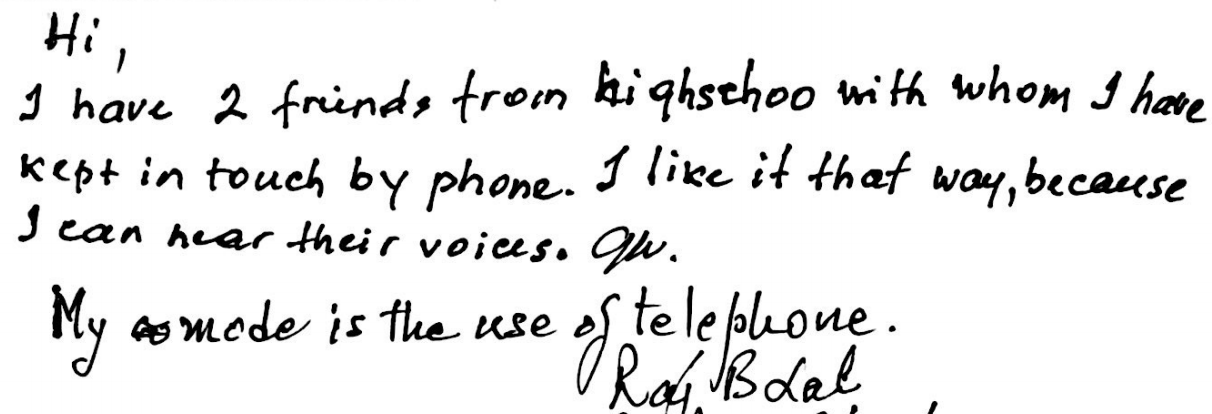 Hi,
I have 2 friends from highschoo with whom I have
kept in touch by phone. I like it that way, because
I can hear their voices.
My mode is the use of telephone.
Ray